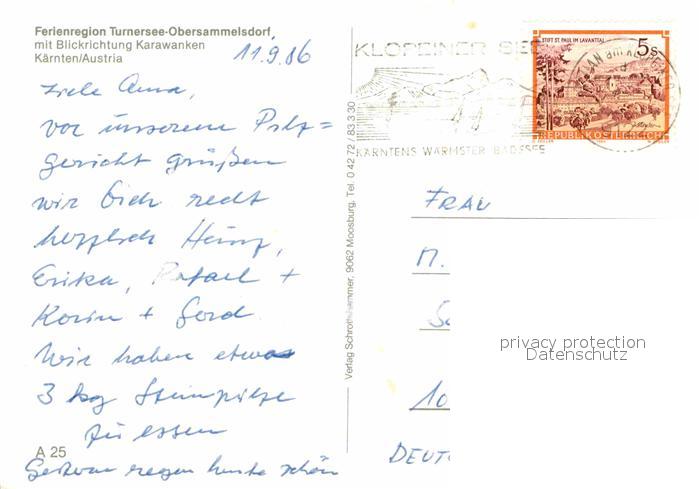 Ferienregion Turnersee-Obersammelsdorf,
mit Blickrichtung Karawanken
Kärnten/Austria
11.9.86
Anna,
vor unserem Pilz=
gericht grüßen
wir Dich recht
herzlich Heinz,
Erika, Rafael +
Karin + Gerd.
Wir haben etwas
3 kg Steinpilze
zu essen
A 25
Gestern regen heute schön
Verlag Schrottenhammer, 9062 Moosburg, Tel. 0 42 72 / 83 3 30
KLOPEINER SEE
KÄRNTENS WÄRMSTER BADESEE
STIFT ST. PAUL IM LAVANTTAL
5s
REPUBLIK ÖSTERREICH
FRAU
M.
10
DEUT
privacy protection
Datenschutz